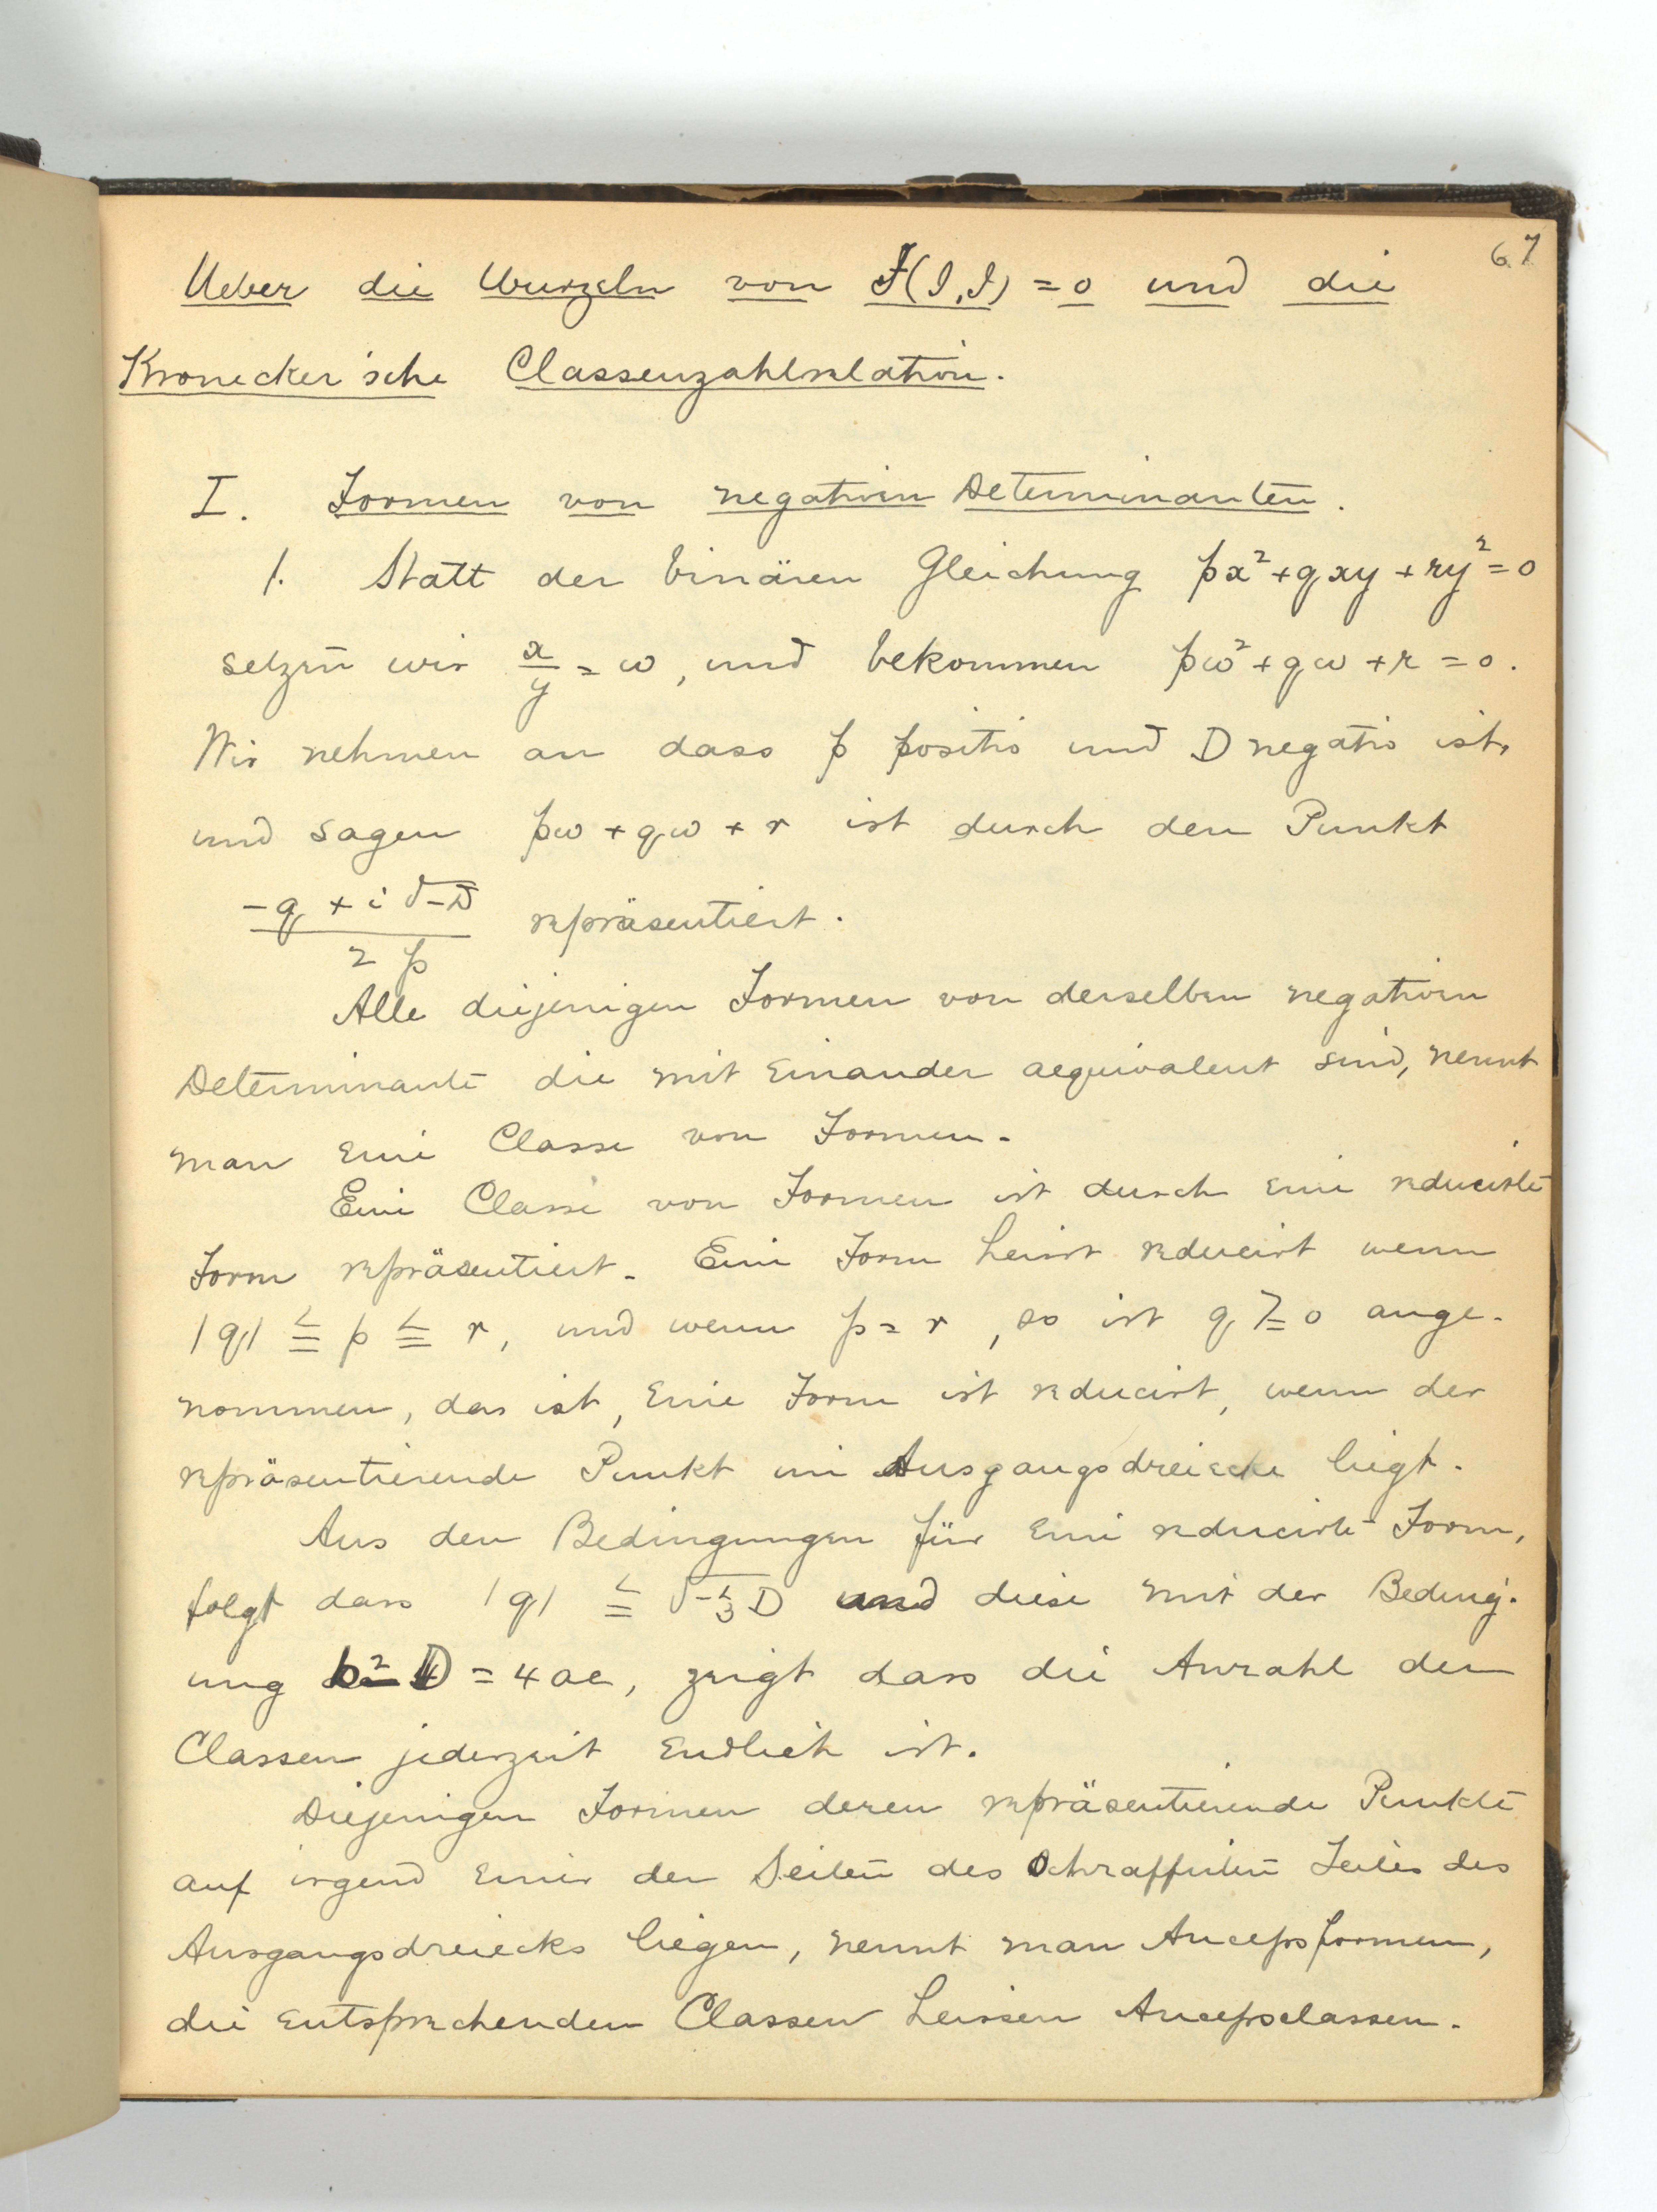 67
Ueber die Wurzeln von F(J, J) = 0 und die
Kronecker'sche Classenzahlrelation.
I. Formen von negativen Determinanten.
1. Statt der binären Gleichung px²+qxy+ry²=0
setzen wir x/y = ω, und bekommen pω²+qω+r=0.
Wir nehmen an dass p positiv und D negativ ist,
und sagen pω+qω+r ist durch den Punkt
(-q+i√-D)/2p repräsentiert.
Alle diejenigen Formen von derselben negativen
Determinante die mit einander aequivalent sind, nennt
man eine Classe von Formen.
Eine Classe von Formen ist durch eine reducirte
Form repräsentiert. Eine Form heisst reducirt wenn
|q| ≦ p ≦ r, und wenn p=r, so ist q ≧ 0 ange-
nommen, das ist, eine Form ist reducirt, wenn der
repräsentierende Punkt im Ausgangsdreiecke liegt.
Aus den Bedingungen für eine reducirte Form,
folgt dass |q| ≦ √-⅓D und diese mit der Beding-
ung b²-D = 4ac, zeigt dass die Anzahl der
Classen jederzeit endlich ist.
Diejenigen Formen deren repräsentierende Punkte
auf irgend einer der Seiten des schraffirten Teiles des
Ausgangsdreiecks liegen, nennt man Ancepsformen,
die entsprechenden Classen heissen Ancepsclassen.